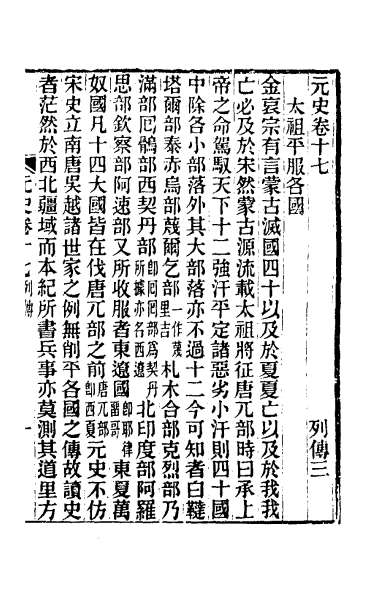 元史卷十七　列傳三
太祖平服各國
金哀宗有言蒙古滅國四十以及於夏夏亡以及於我我
亡必及於宋然蒙古源流載太祖將征唐兀部時曰承上
帝之命駕馭天下十二強汗平定諸惡劣小汗則四十國
中除各小部落外其大部落亦不過十二今可知者曰韃
塔爾部泰赤烏部蔑爾乞部一作蔑里吉札木合部克烈部乃
滿部回鶻部西契丹部卽阿罔部為契丹所據亦名西遼北印度部阿羅
思部欽察部阿速部又所收服者東遼國卽耶律留哥東夏萬
奴國凡十四大國皆在伐唐兀部之前唐兀部卽西夏元史不仿
宋史立南唐吳越諸世家之例無削平各國之傳故讀史
者茫然於西北疆域而本紀所書兵事亦莫測其道里方
元史卷十七　列傳　一